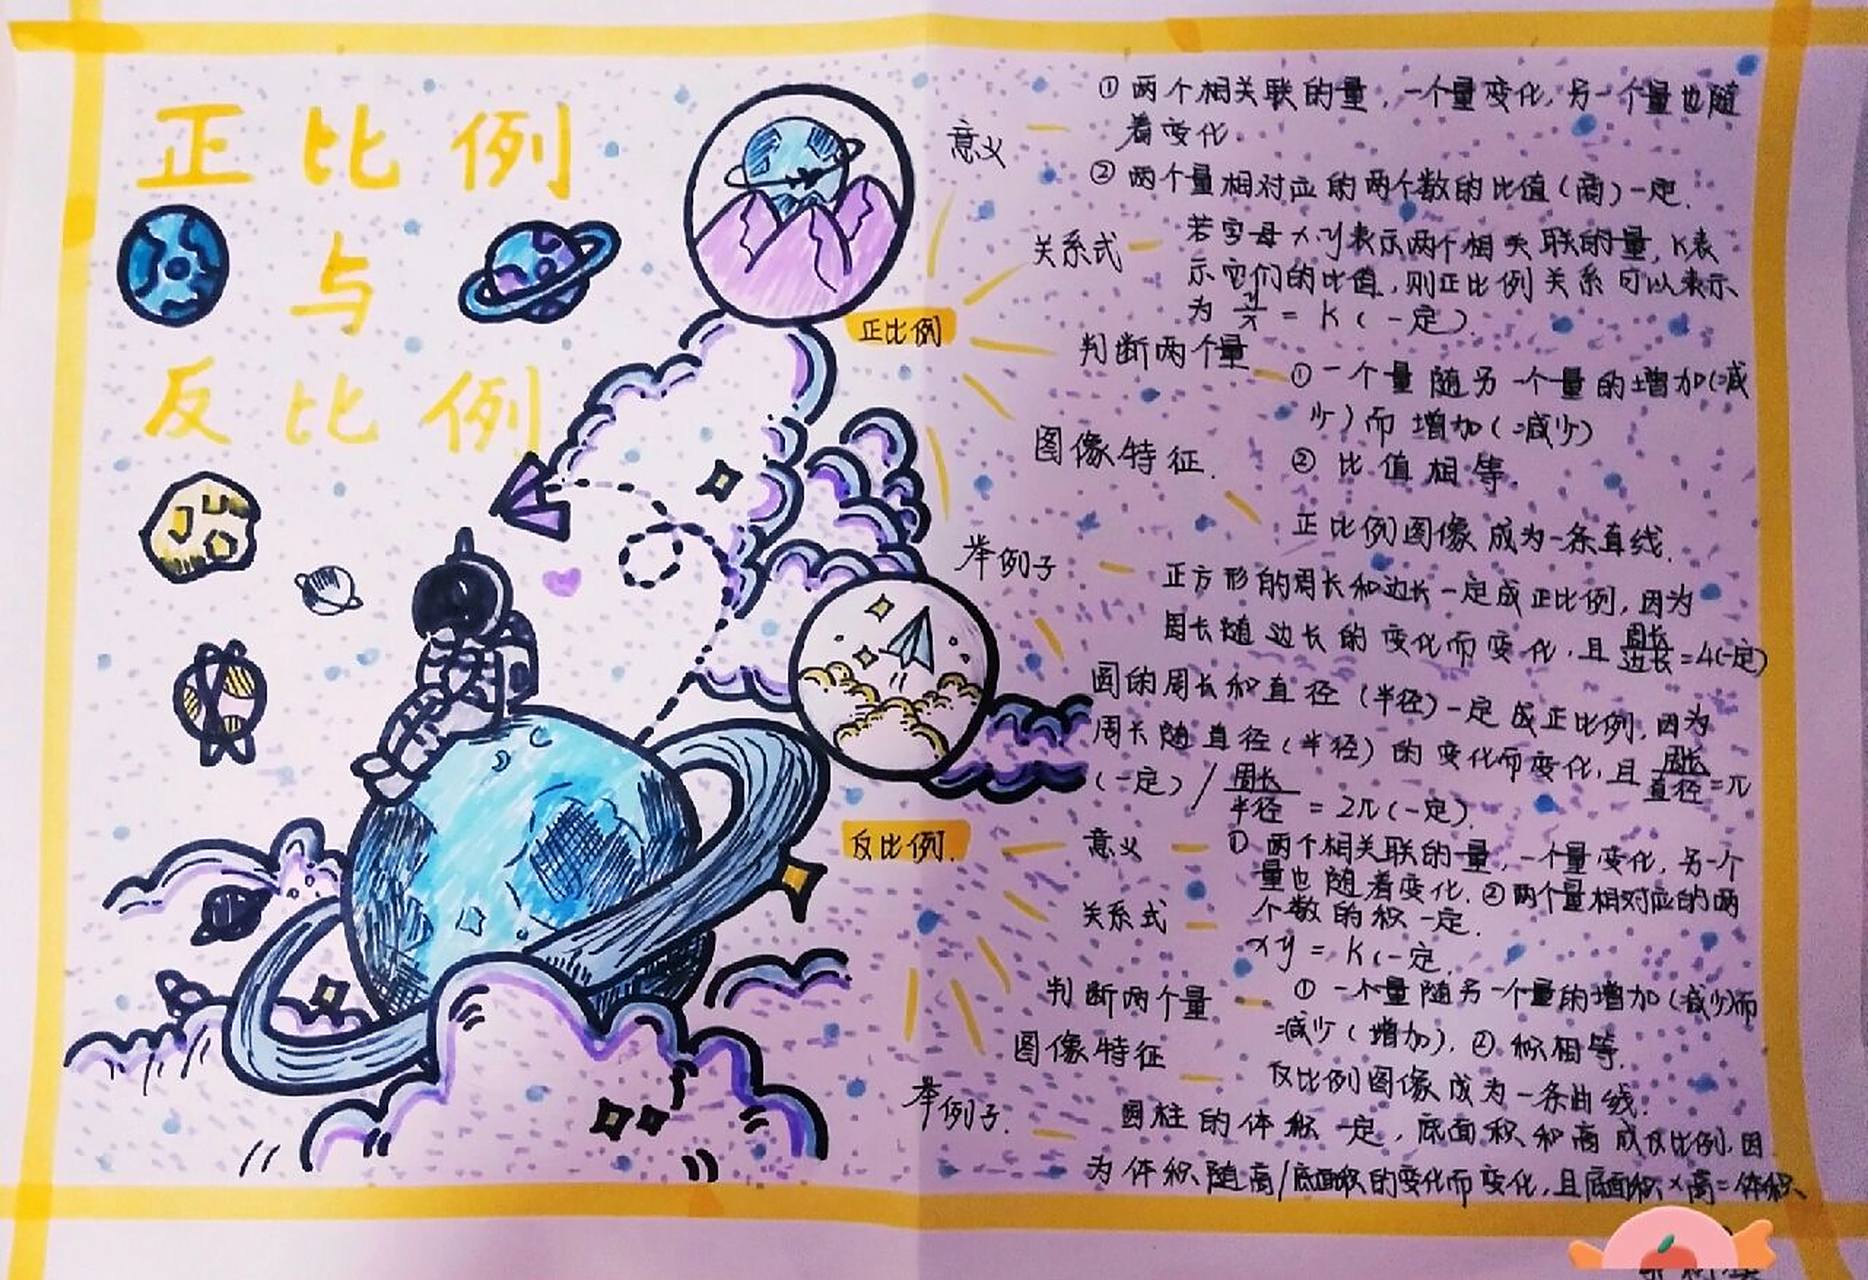 正比例
与
反比例
正比例
意义
① 两个相关联的量，一个量变化，另一个量也随
着变化.
② 两个量相对应的两个数的比值（商）一定.
关系式
若字母x.y表示两个相关联的量，K表
示它们的比值，则正比例关系可以表示
为 y/x = K（一定）.
判断两个量
① 一个量随另一个量的增加（减
少）而增加（减少）
② 比值相等.
图像特征.
正比例图像成为一条直线.
举例子
正方形的周长和边长一定成正比例，因为
周长随边长的变化而变化，且 周长/边长 =4(一定)
圆的周长和直径（半径）一定成正比例，因为
周长随直径（半径）的变化而变化，且 周长/直径 =π
（一定）/ 周长/半径 = 2π（一定）.
反比例.
意义
① 两个相关联的量，一个量变化，另一个
量也随着变化. ② 两个量相对应的两
个数的积一定.
关系式
xy = K（一定.
判断两个量
① 一个量随另一个量的增加（减少）而
减少（增加）. ② 积相等.
图像特征
反比例图像成为一条曲线.
举例子.
圆柱的体积一定，底面积和高成反比例，因
为体积随高/底面积的变化而变化，且底面积×高=体积、